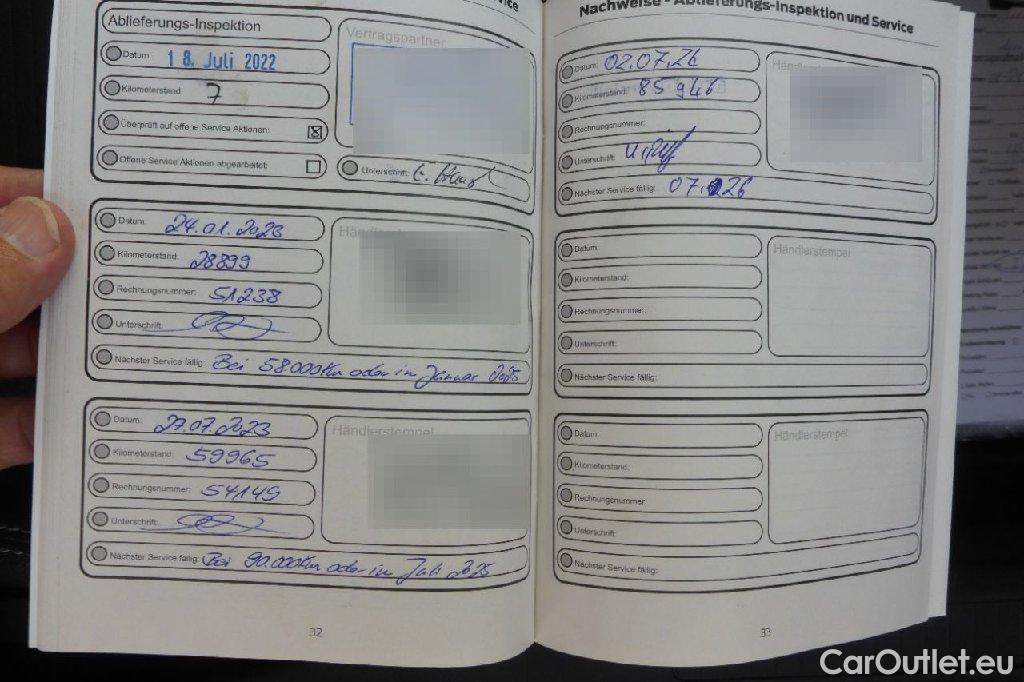 Ablieferungs-Inspektion
Vertragspartner
Datum: 18. Juli 2022
Kilometerstand: 7
Überprüft auf offene Service Aktionen: ☒
Offene Service Aktionen abgearbeitet: ☐
Unterschrift:
Datum: 24.01.2023
Händlerstempel
Kilometerstand: 28899
Rechnungsnummer: 51238
Unterschrift:
Nächster Service fällig: Bei 58.000Km oder im Januar 2025
Datum: 27.07.2023
Händlerstempel
Kilometerstand: 59965
Rechnungsnummer: 54149
Unterschrift:
Nächster Service fällig: Bei 90.000Km oder im Juli 2025
32
Nachweise - Ablieferungs-Inspektion und Service
Datum: 02.07.26
Kilometerstand: 85946
Rechnungsnummer:
Unterschrift:
Nächster Service fällig: 07. 26
Datum:
Händlerstempel
Kilometerstand:
Rechnungsnummer:
Unterschrift:
Nächster Service fällig:
Datum:
Händlerstempel
Kilometerstand:
Rechnungsnummer:
Unterschrift:
Nächster Service fällig:
33
CarOutlet.eu